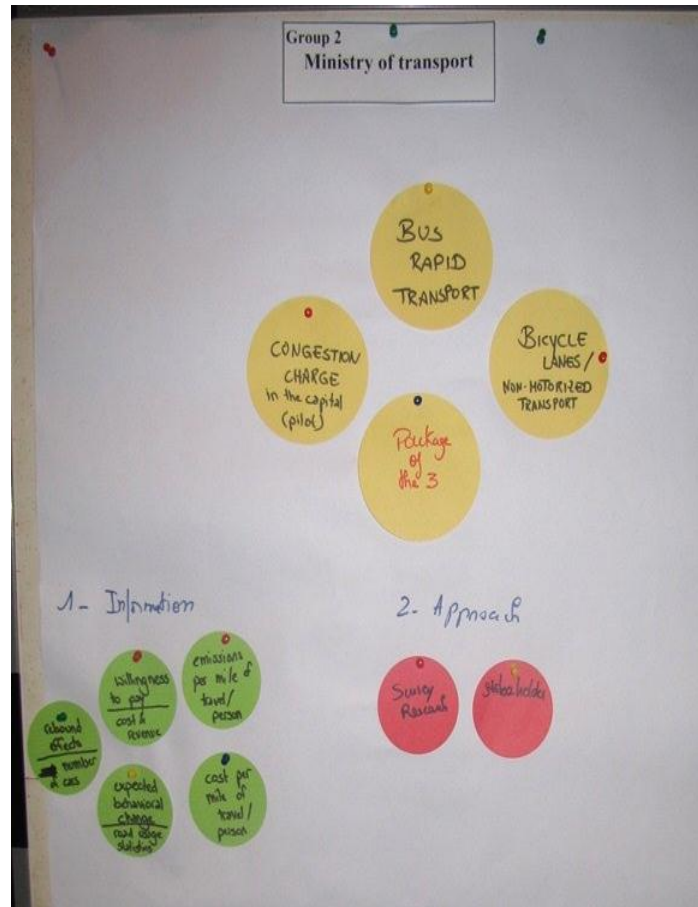 Group 2
Ministry of transport
BUS
RAPID
TRANSPORT
CONGESTION
CHARGE
in the capital
(pilot)
BICYCLE
LANES /
NON-MOTORIZED
TRANSPORT
Package
of
the 3
1- Information
willingness
to pay
cost &
revenue
emissions
per mile of
travel/
person
rebound
effects
number
of cars
expected
behavioral
change
road usage
statistics
cost per
mile of
travel/
person
2- Approach
Survey
Research
stakeholder